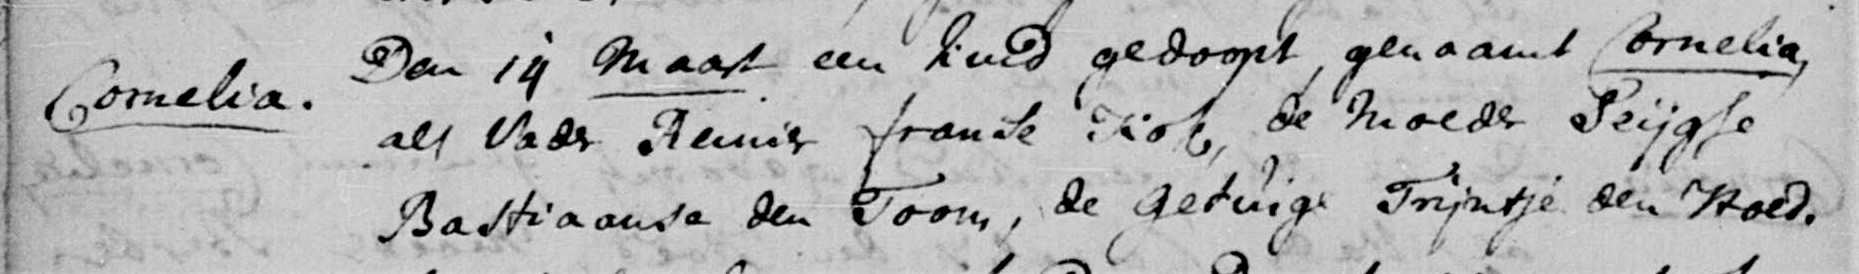 Cornelia.
Den 14 Maart een kind gedoopt, genaamt Cornelia,
als Vader Reinier franse Kok, de Moeder Peijgse
Bastiaanse den Toom, de getuige Trijntje den Hoed.